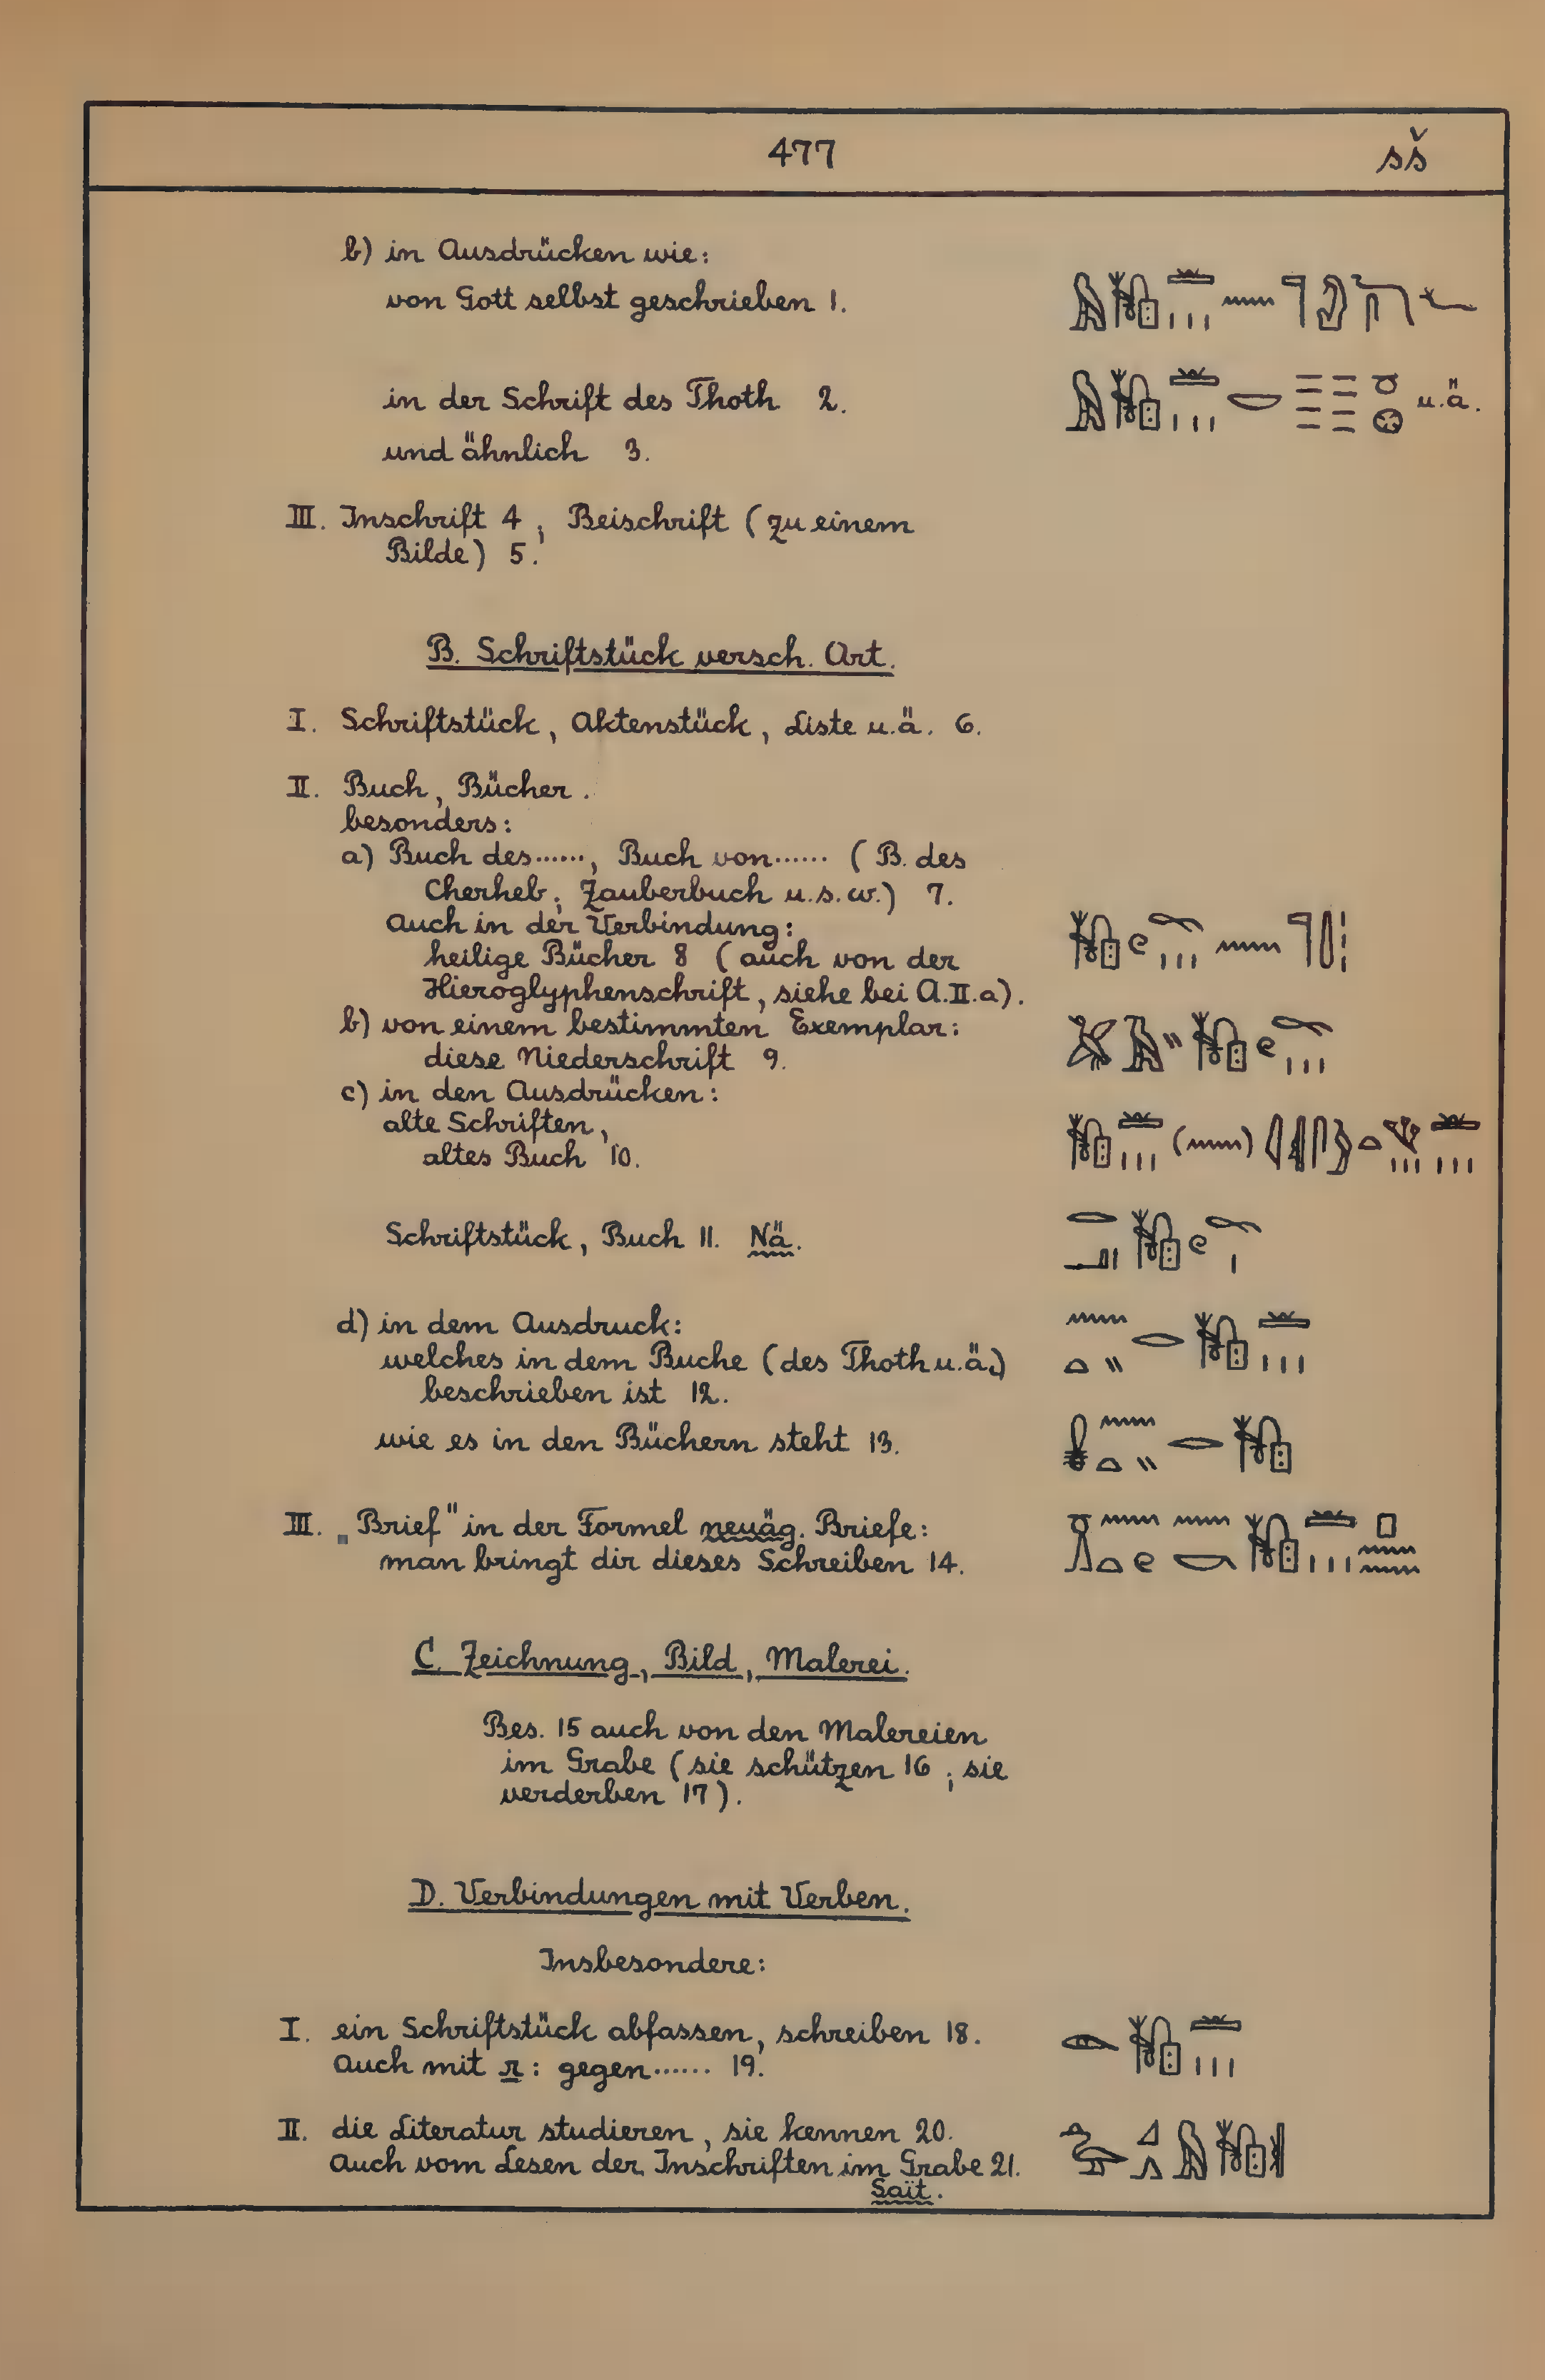 477
sš
b) in Ausdrücken wie:
von Gott selbst geschrieben 1.
in der Schrift des Thoth 2.
u.ä.
und ähnlich 3.
III. Inschrift 4, Beischrift (zu einem
Bilde) 5.
B. Schriftstück versch. Art.
I. Schriftstück, Aktenstück, Liste u.ä. 6.
II. Buch, Bücher.
besonders:
a) Buch des......, Buch von...... (B. des
Cherheb; Zauberbuch u.s.w.) 7.
Auch in der Verbindung:
heilige Bücher 8 (auch von der
Hieroglyphenschrift, siehe bei A.II.a).
b) von einem bestimmten Exemplar:
diese Niederschrift 9.
c) in den Ausdrücken:
alte Schriften,
altes Buch 10.
Schriftstück, Buch 11. Nä.
d) in dem Ausdruck:
welches in dem Buche (des Thoth u.ä.)
beschrieben ist 12.
wie es in den Büchern steht 13.
III. „Brief" in der Formel neuäg. Briefe:
man bringt dir dieses Schreiben 14.
C. Zeichnung, Bild, Malerei.
Bes. 15 auch von den Malereien
im Grabe (sie schützen 16; sie
verderben 17).
D. Verbindungen mit Verben.
Insbesondere:
I. ein Schriftstück abfassen, schreiben 18.
Auch mit r: gegen...... 19.
II. die Literatur studieren, sie kennen 20.
Auch vom Lesen der Inschriften im Grabe 21.
Saït.